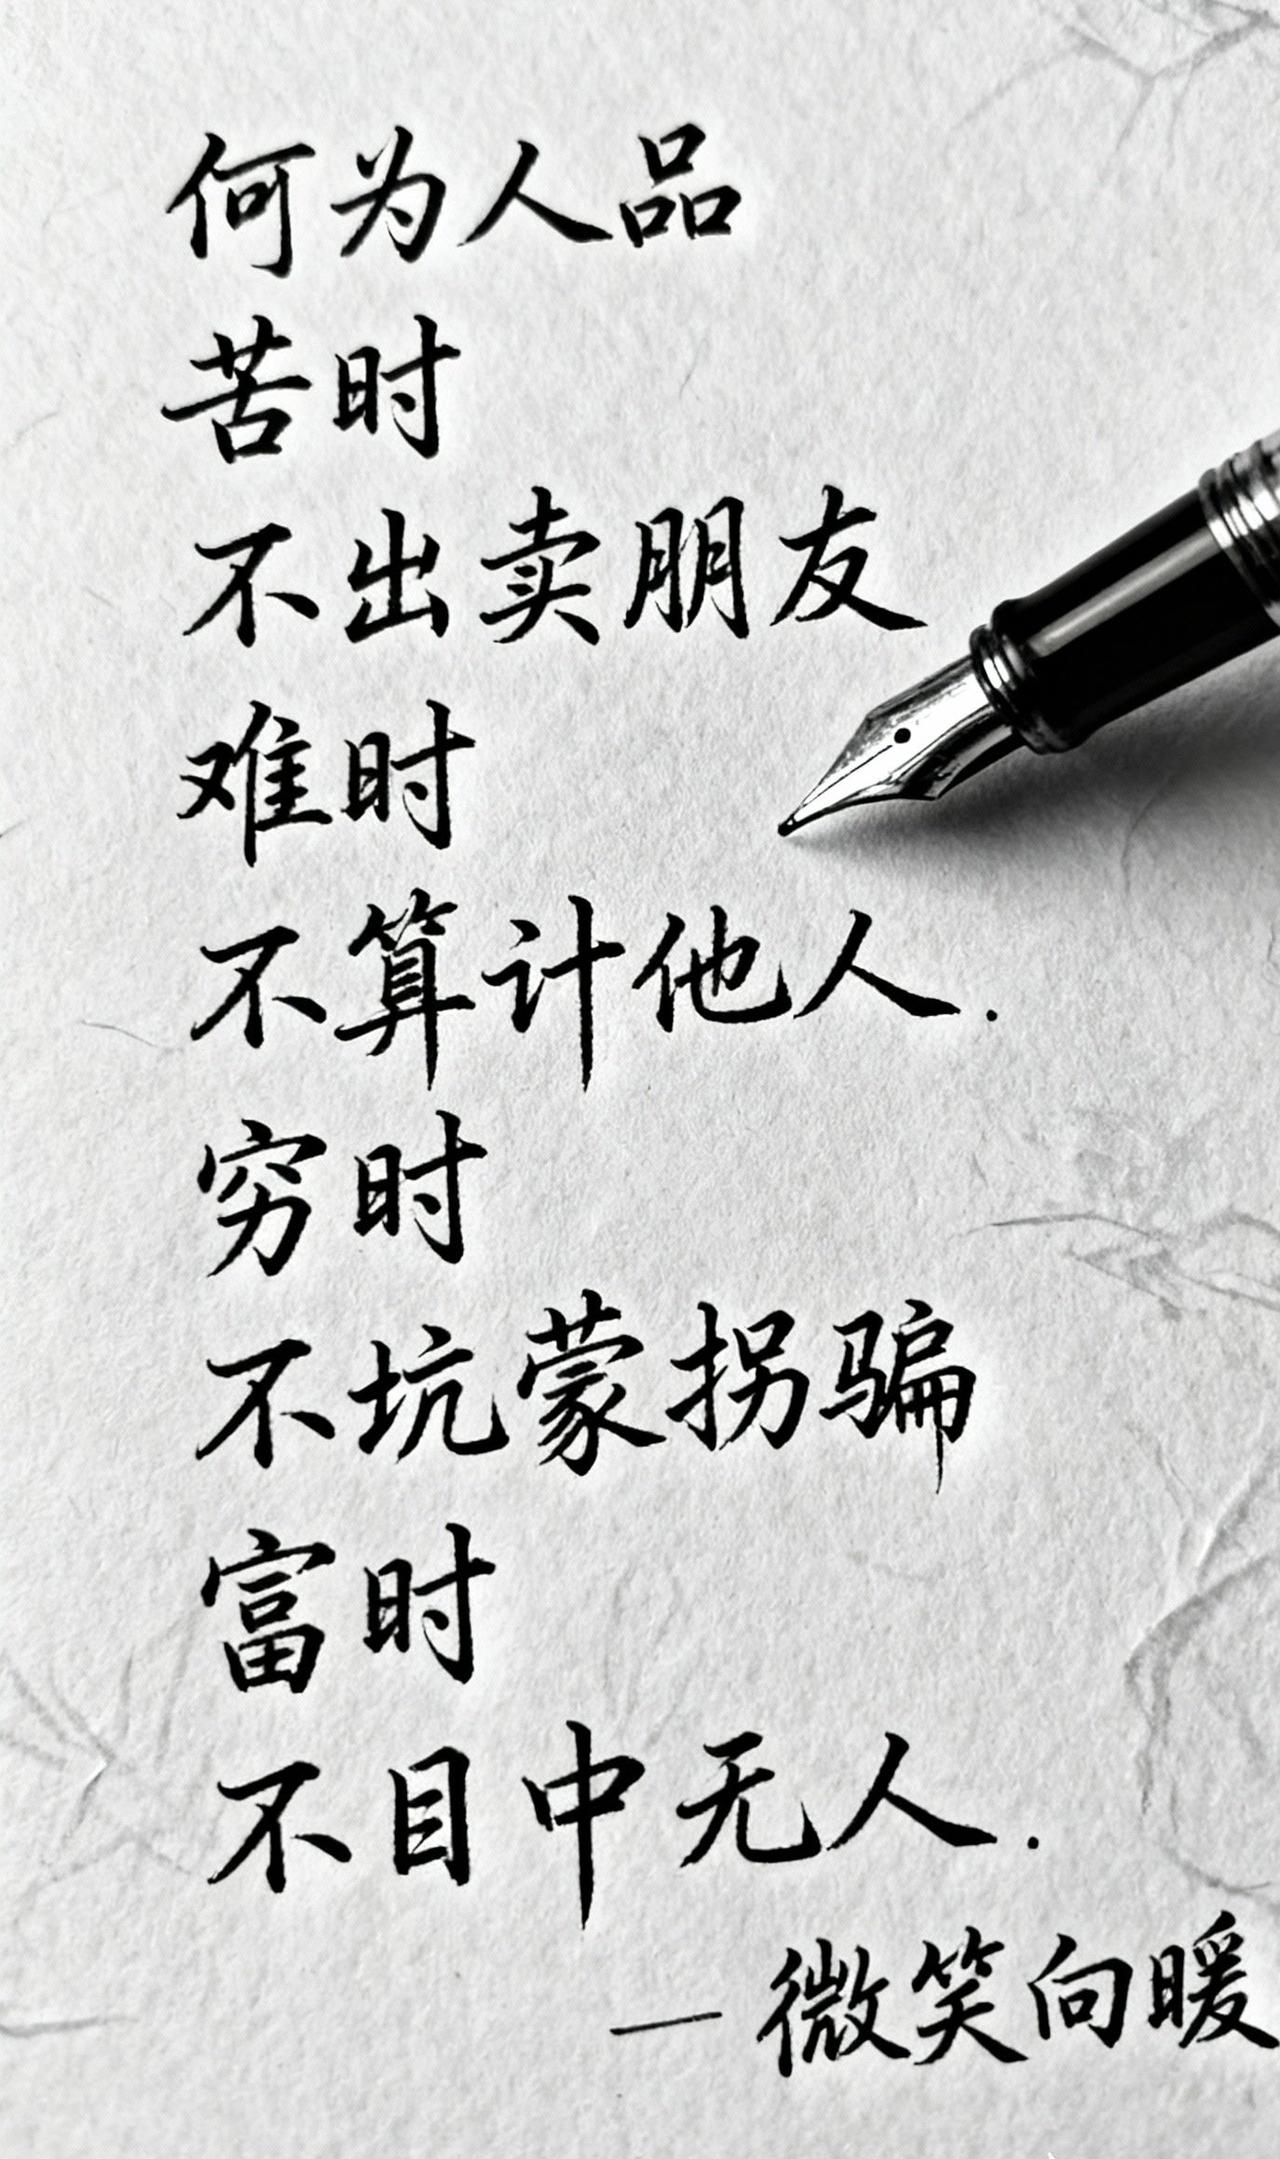 何为人品
苦时
不出卖朋友
难时
不算计他人.
穷时
不坑蒙拐骗
富时
不目中无人.
— 微笑向暖